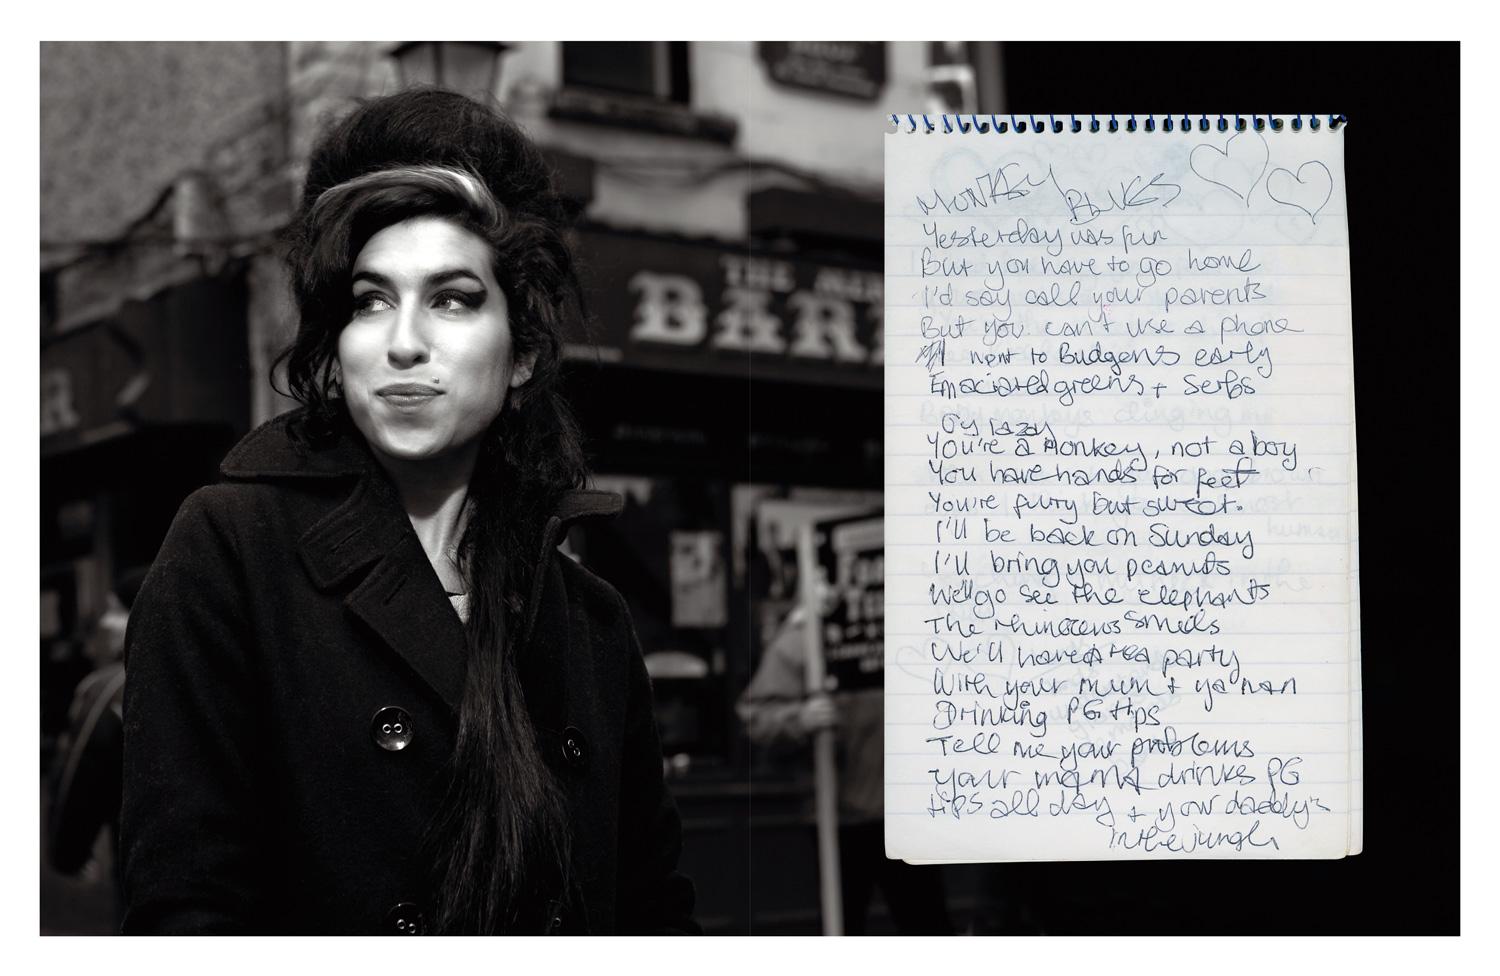 THE
BAR
MONKEY BLUES
Yesterday was fun
But you have to go home
I'd say call your parents
But you can't use a phone
I went to Budgens early
Emaciated greens + Serbs
You're a Monkey, not a boy
You have hands for feet
You're furry but sweet.
I'll be back on Sunday
I'll bring you peanuts
We'll go see the elephants
The rhinoceros smells
We'll have a tea party
With your mum + ya nan
Drinking PG tips
Tell me your problems
Your mama drinks PG
tips all day + your daddy's
in the jungle